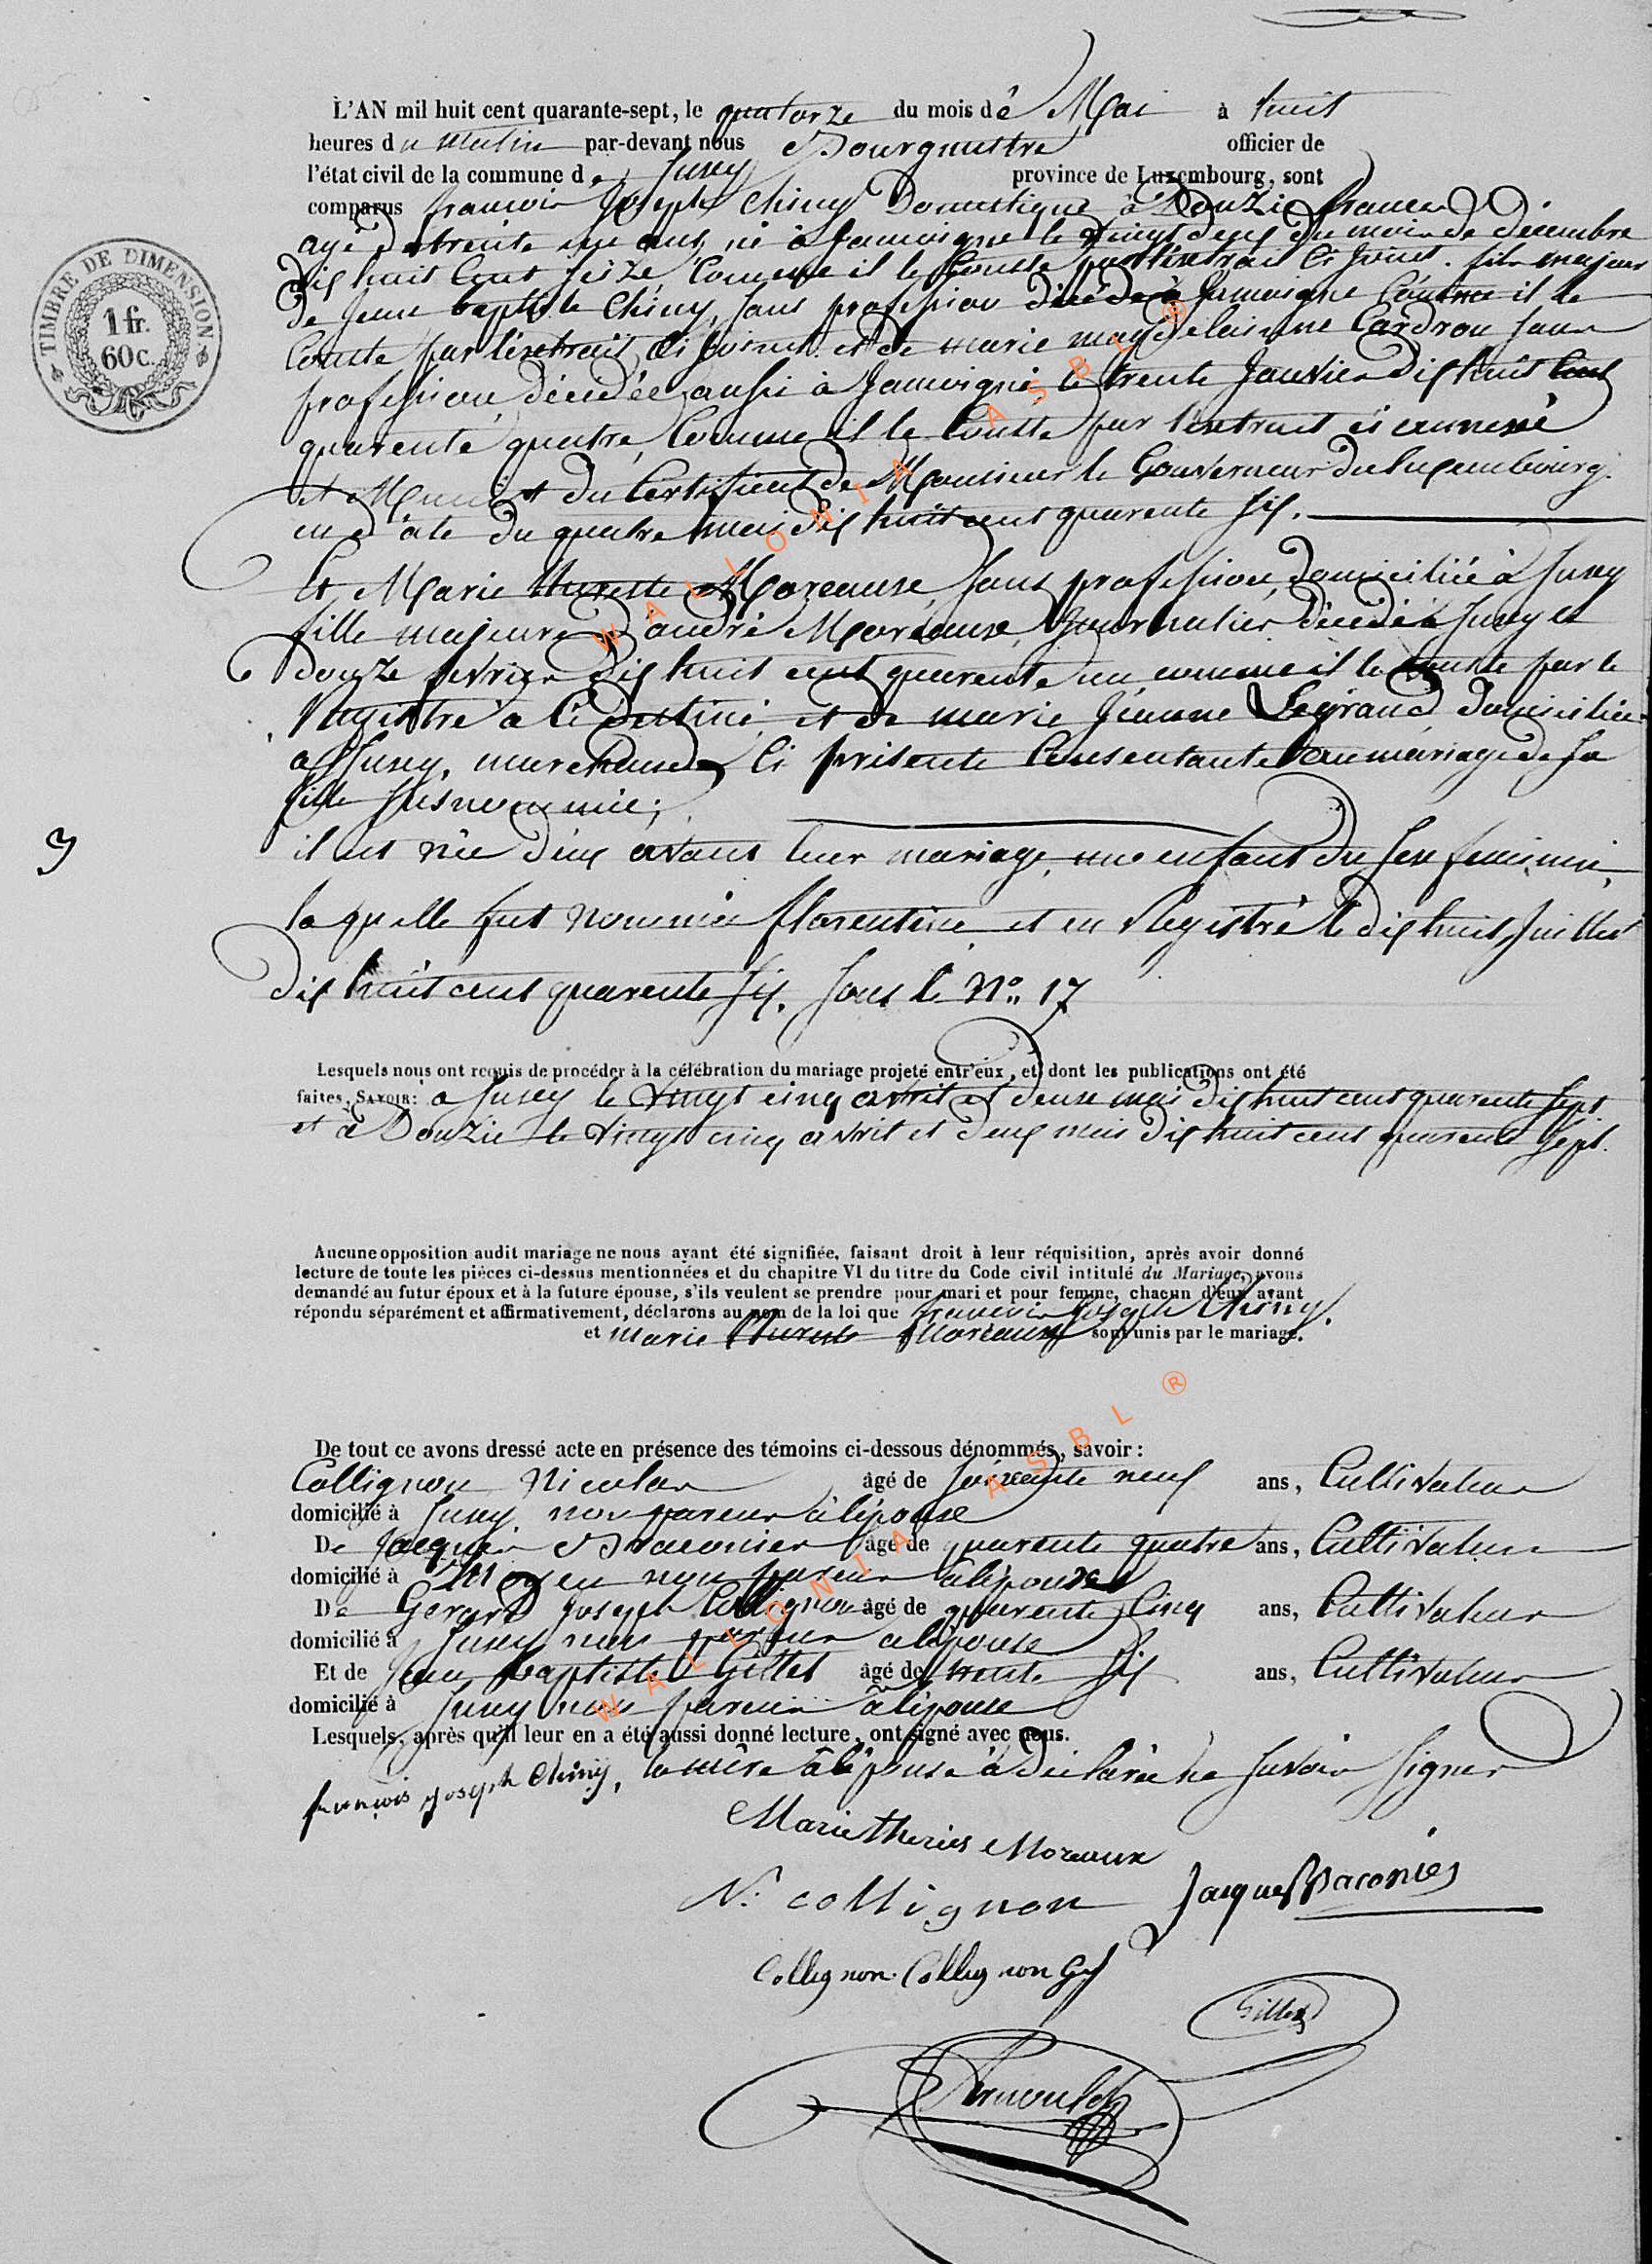 L'AN mil huit cent quarante-sept, le quatorze du mois de Mai à huit
heures du matin par-devant nous Bourgmestre officier de
l'état civil de la commune de Jusey province de Luxembourg, sont
comparus francois Joseph Chiny Domestique à Douzie france
agé de trente un ans, né à Jamoigne le vingt deux du mois de décembre
dix huit Cent seize, Comme il le Conste par l'extrait ci joint. fils majeur
de jean baptiste Chiny, sans profession décédé à Jamoigne Comme il le
Conste par l'extrait ci joint. et de marie magdelainne Cardron sans
profession, décédée aussi à Jamoigne le trente Janvier dix huit Cent
quarente quatre, Comme il le Conste par l'extrait ci annexé
et Muni du Certificat de Monsieur le Gouverneur du luxembourg.
en date du quatre mai dix huit cent quarente six.
Et Marie theresse Moreaux, sans profession, domiciliée à Jusey
fille majeure d'andré Moreaux, Journalier, décédé à Jusey le
douze fevrier dix huit cent quarente un comme il le conste par le
Registre a ci destiné, et de marie Jeanne Legrand domiciliée
a Jusey, marchande ci présente Consentante au mariage de sa
fille susnommée;
il est née d'eux avant leur mariage, une enfant du sexe feminin,
la quelle fut nommée florentine et en Registré le dix huit Juillet
dix huit cent quarente six. sous le No. 17
3
Lesquels nous ont requis de procéder à la célébration du mariage projeté entr'eux, et dont les publications ont été
faites, SAVOIR: a Jusey le vingt cinq avril et deuxe mai dix huit cent quarente sept
et à Douzie le vingt cinq avril et deux mai dix huit cent quarente sept.
Aucune opposition audit mariage ne nous ayant été signifiée, faisant droit à leur réquisition, après avoir donné
lecture de toute les pièces ci-dessus mentionnées et du chapitre VI du titre du Code civil intitulé du Mariage, avons
demandé au futur époux et à la future épouse, s'ils veulent se prendre pour mari et pour femme, chacun d'eux ayant
répondu séparément et affirmativement, déclarons au nom de la loi que francois Joseph Chiny.
et marie therese Moreaux sont unis par le mariage.
De tout ce avons dressé acte en présence des témoins ci-dessous dénommés, savoir:
Collignon Nicolas âgé de soixante neuf ans, Cultivateur
domicilié à Jusey non parent à l'épouse
De Jacques Braconier âgé de quarente quatre ans, Cultivateur
domicilié à Moyen non parent a l'épouse
De Gerard Joseph Collignon âgé de quarente Cinq ans, Cultivateur
domicilié à Jusey non parent a l'épouse
Et de Jean baptiste Gillet âgé de trente six ans, Cultivateur
domicilié à Jusey non parent à l'épouse
Lesquels, après qu'il leur en a été aussi donné lecture, ont signé avec nous.
la mère à l'épouse à déclarée ne savoir signer
françois joseph Chiny,
Marie theries Moreaux
N. collignon Jacques Braconier
Collignon. Collignon GJ
Gillet
Arnould
TIMBRE DE DIMENSION
1 fr.
60 c.
WALLONIA ASBL ®
WALLONIA ASBL ®